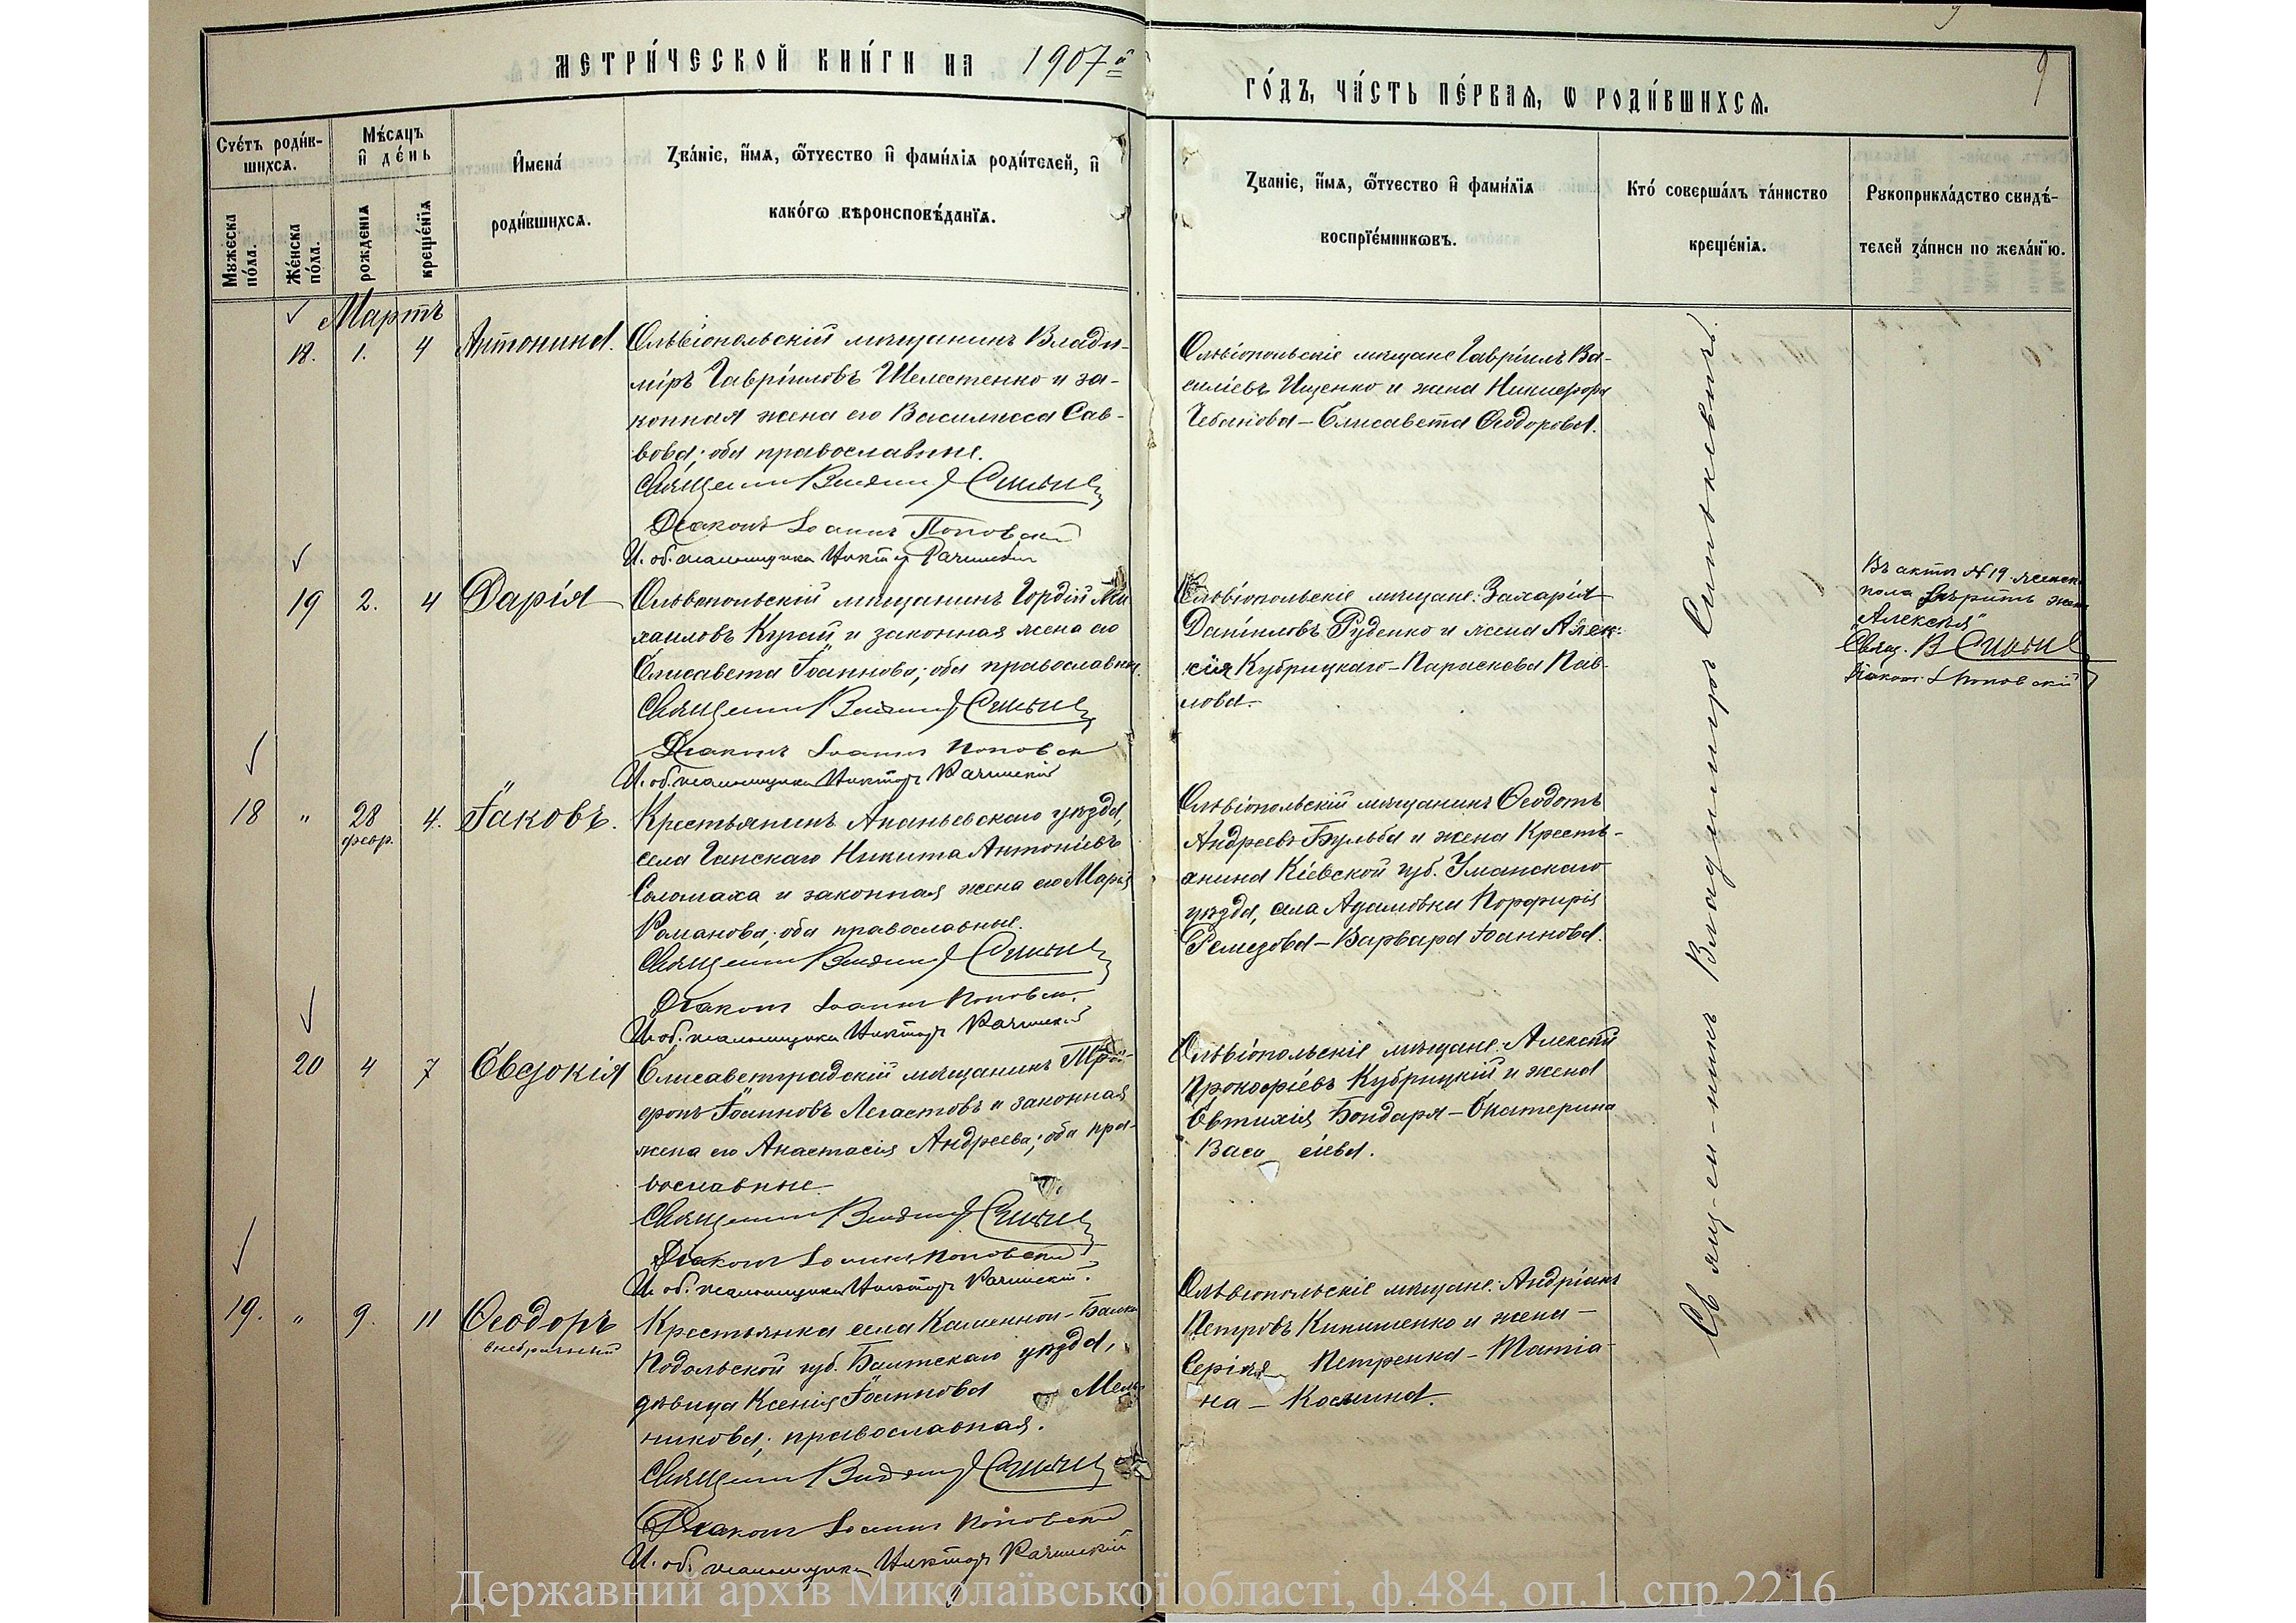 МЕТРИ́ЧЕСКОЙ КНИ́ГИ НА 1907й
ГО́ДЪ, ЧА́СТЬ ПЕ́РВАѦ, Ѡ РОДИ́ВШИХСѦ.
9
Сче́тъ роди́в-
шихсѧ.
Мужеска по́ла.
Же́нска по́ла.
Мѣ́сѧцъ
и де́нь
рожденїѧ
креще́нїѧ
Имена́
роди́вшихсѧ.
Зва́нїе, и́мѧ, ѻ́тчество и фами́лїѧ роди́телей, и
како́гѡ вѣроисповѣ́данїѧ.
Званїе, и́мѧ, ѻ́тчество и фами́лїѧ
воспрїе́мниковъ.
Кто́ соверша́лъ та́инство
креще́нїѧ.
Рукоприкла́дство свидѣ́-
телей за́писи по жела́нїю.
Мартъ
18. 1. 4 Антонина.
Ольвіопольскій мѣщанинъ Влади-
міръ Гавріиловъ Шелестенко и за-
конная жена его Василисса Сав-
вова; оба православные.
Священникъ Владиміръ
Діаконъ Іоаннъ Поповскій
И. об. псаломщика Викторъ Рачинскій
Ольвіопольскіе мѣщане Гавріилъ Ва-
силіевъ Ищенко и жена Никифора
Чебанова – Елисавета Ѳеодорова.
Священникъ Владиміръ Синькевичъ.
19 2. 4 Дарія
Ольвіопольскій мѣщанинъ Гордій Ми-
хаиловъ и законная жена его
Елисавета Іоаннова; оба православные.
Священникъ Владиміръ
Діаконъ Іоаннъ Поповскій
И. об. псаломщика Викторъ Рачинскій
Ольвіопольскіе мѣщане: Захарія
Даніиловъ Руденко и жена Алек-
сія Кубрицкаго – Параскева Пав-
лова.
Въ актѣ № 19 женск.
пола
„Алексѣя“
Свящ. В.
Діакон. І Поповскій
18 " 28 февр. 4. Іаковъ.
Крестьянинъ Ананьевскаго уѣзда,
села Никита Антоніевъ
Соломаха и законная жена его Марія
Романова; оба православные.
Священникъ Владиміръ
Діаконъ Іоаннъ Поповскій
И. об. псаломщика Викторъ Рачинскій
Ольвіопольскій мѣщанинъ Ѳеодотъ
Андреевъ Бульба и жена Кресть-
янина Кіевской губ. Уманскаго
уѣзда, села Адамовки Порфирія
Ремезова – Варвара Іоаннова.
20 4 7 Евдокія
Елисаветградскій мѣщанинъ
Іоанновъ и законная
жена его Анастасія Андреева; оба пра-
вославные.
Священникъ Владиміръ
Діаконъ Іоаннъ Поповскій
И. об. псаломщика Викторъ Рачинскій.
Ольвіопольскіе мѣщане: Алексѣй
Прокофіевъ Кубрицкій и жена
Евтихія Бондаря – Екатерина
Васи сіева.
19. " 9. 11 Ѳеодоръ
внебрачный
Крестьянка села Каменной-Балки
Подольской губ. Балтскаго уѣзда,
дѣвица Ксенія Іоаннова Мель-
никова; православная.
Священникъ Владиміръ
Діаконъ Іоаннъ Поповскій
И. об. псаломщика Викторъ Рачинскій
Ольвіопольскіе мѣщане: Андріанъ
Петровъ и жена –
Сергія Петренка – Татіа-
на – Космина.
Державний архів Миколаївської області, ф.484, оп.1, спр.2216